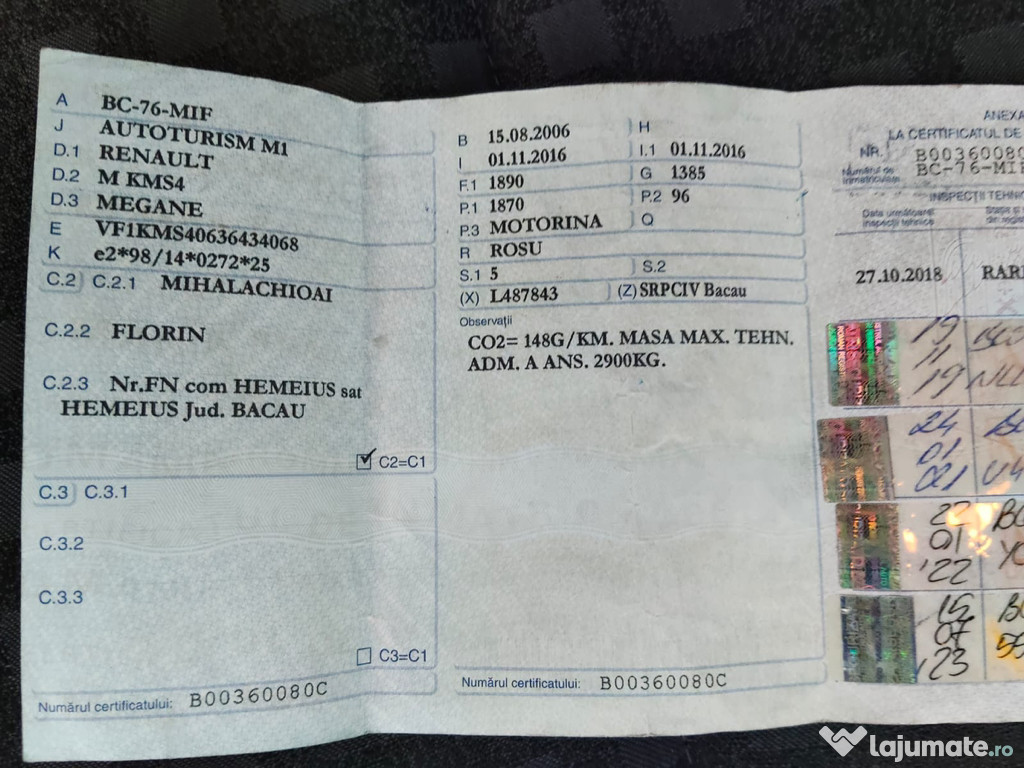 A BC-76-MIF
J AUTOTURISM M1
D.1 RENAULT
D.2 M KMS4
D.3 MEGANE
E VF1KMS40636434068
K e2*98/14*0272*25
C.2 C.2.1 MIHALACHIOAI
C.2.2 FLORIN
C.2.3 Nr.FN com HEMEIUS sat
HEMEIUS Jud. BACAU
C2=C1
C.3 C.3.1
C.3.2
C.3.3
C3=C1
Numărul certificatului: B00360080C
B 15.08.2006 H
I 01.11.2016 I.1 01.11.2016
F.1 1890 G 1385
P.1 1870 P.2 96
P.3 MOTORINA Q
R ROSU
S.1 5 S.2
(X) L487843 (Z) SRPCIV Bacau
Observații
CO2= 148G/KM. MASA MAX. TEHN.
ADM. A ANS. 2900KG.
Numărul certificatului: B00360080C
ANEXA
LA CERTIFICATUL DE
NR. B00360080
Numărul de
înmatriculare BC-76-MIF
INSPECȚII TEHNI
Data următoarei
inspecții tehnice
27.10.2018 RAR
19
11
19
24
01
021
22
01
'22
15
07
'23
lajumate.ro